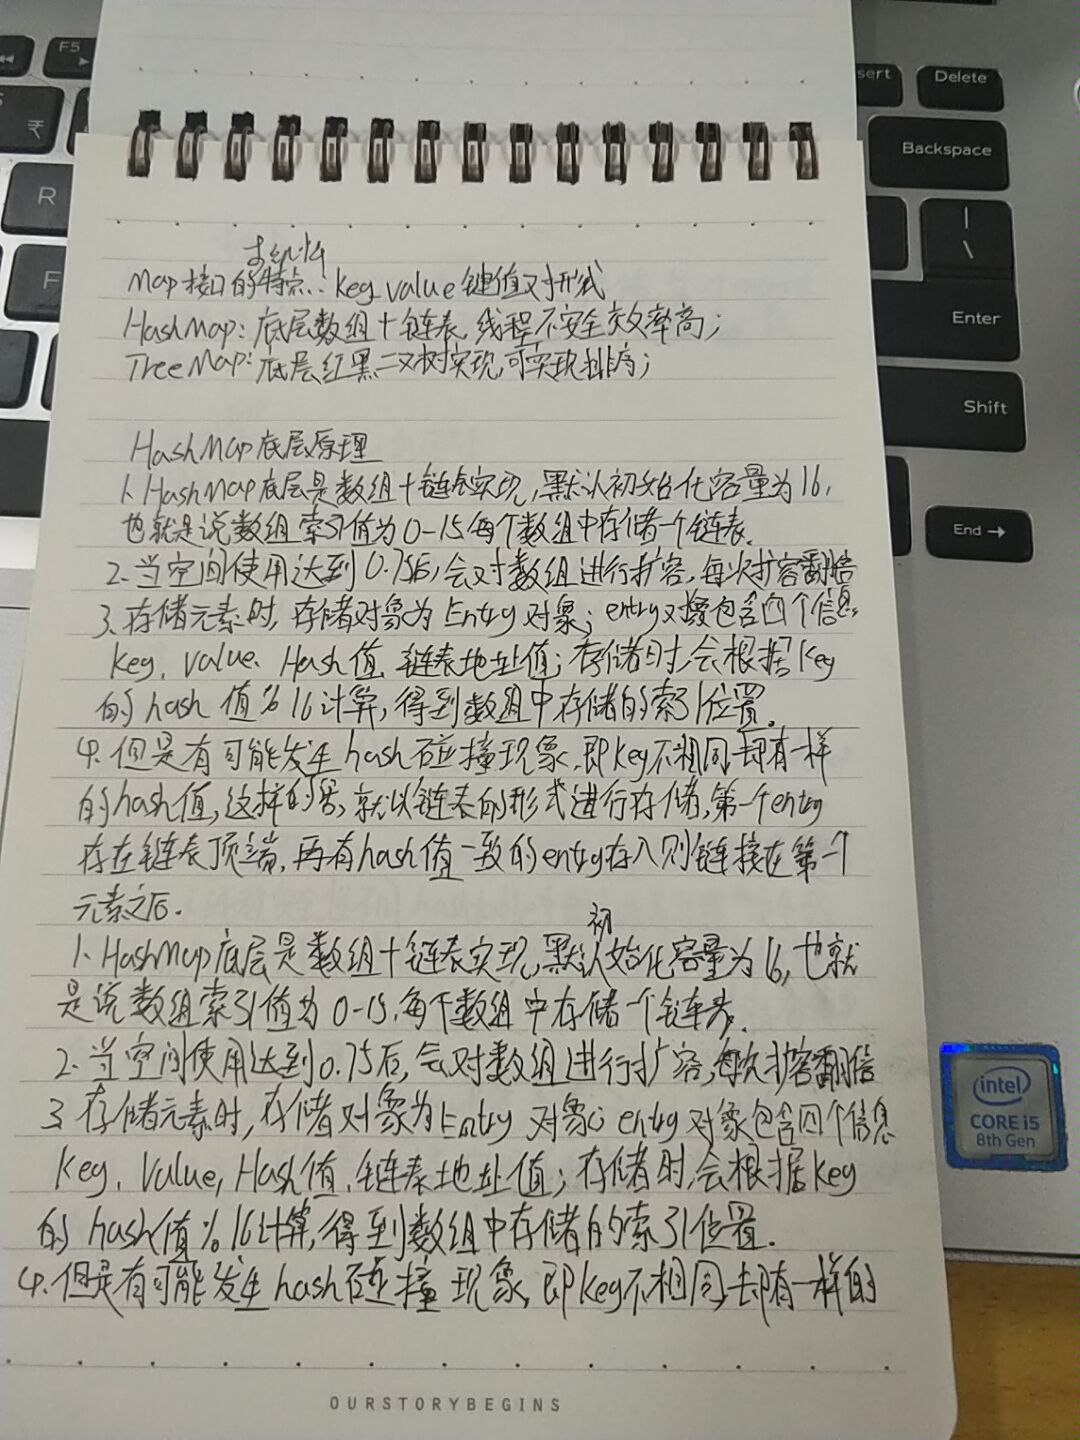 F5
₹
R
F
sert
Delete
Backspace
|
\
Enter
Shift
End →
Map接口的特点: key value 键值对形式
HashMap: 底层数组+链表, 线程不安全效率高;
TreeMap: 底层红黑二叉树实现,可实现排序;
HashMap底层原理
1、HashMap底层是数组+链表实现,默认初始化容量为16,
也就是说数组索引值为0-15每个数组中存储一个链表.
2、当空间使用达到0.75后,会对数组进行扩容,每次扩容翻倍
3、存储元素时,存储对象为Entry对象; entry对象包含四个信息
key、value、Hash值、链表地址值; 存储时,会根据key
的hash值%16计算,得到数组中存储的索引位置.
4、但是有可能发生hash碰撞现象,即key不相同却有一样
的hash值,这样的话,就以链表的形式进行存储,第一个entry
存在链表顶端,再有hash值一致的entry存入则链接在第一个
元素之后.
1、HashMap底层是数组+链表实现,默认初始化容量为16,也就
是说数组索引值为0-15,每个数组中存储一个链表.
2、当空间使用达到0.75后,会对数组进行扩容,每次扩容翻倍
3、存储元素时,存储对象为Entry对象; entry对象包含四个信息
key、value,Hash值、链表地址值;存储时,会根据key
的hash值%16计算,得到数组中存储的索引位置.
4、但是有可能发生hash碰撞现象,即key不相同却有一样的
OURSTORYBEGINS
intel
CORE i5
8th Gen